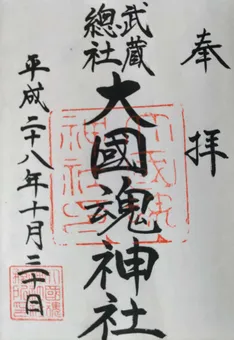 奉拝
武蔵
總社
大國魂神社
平成二十八年十月二十日